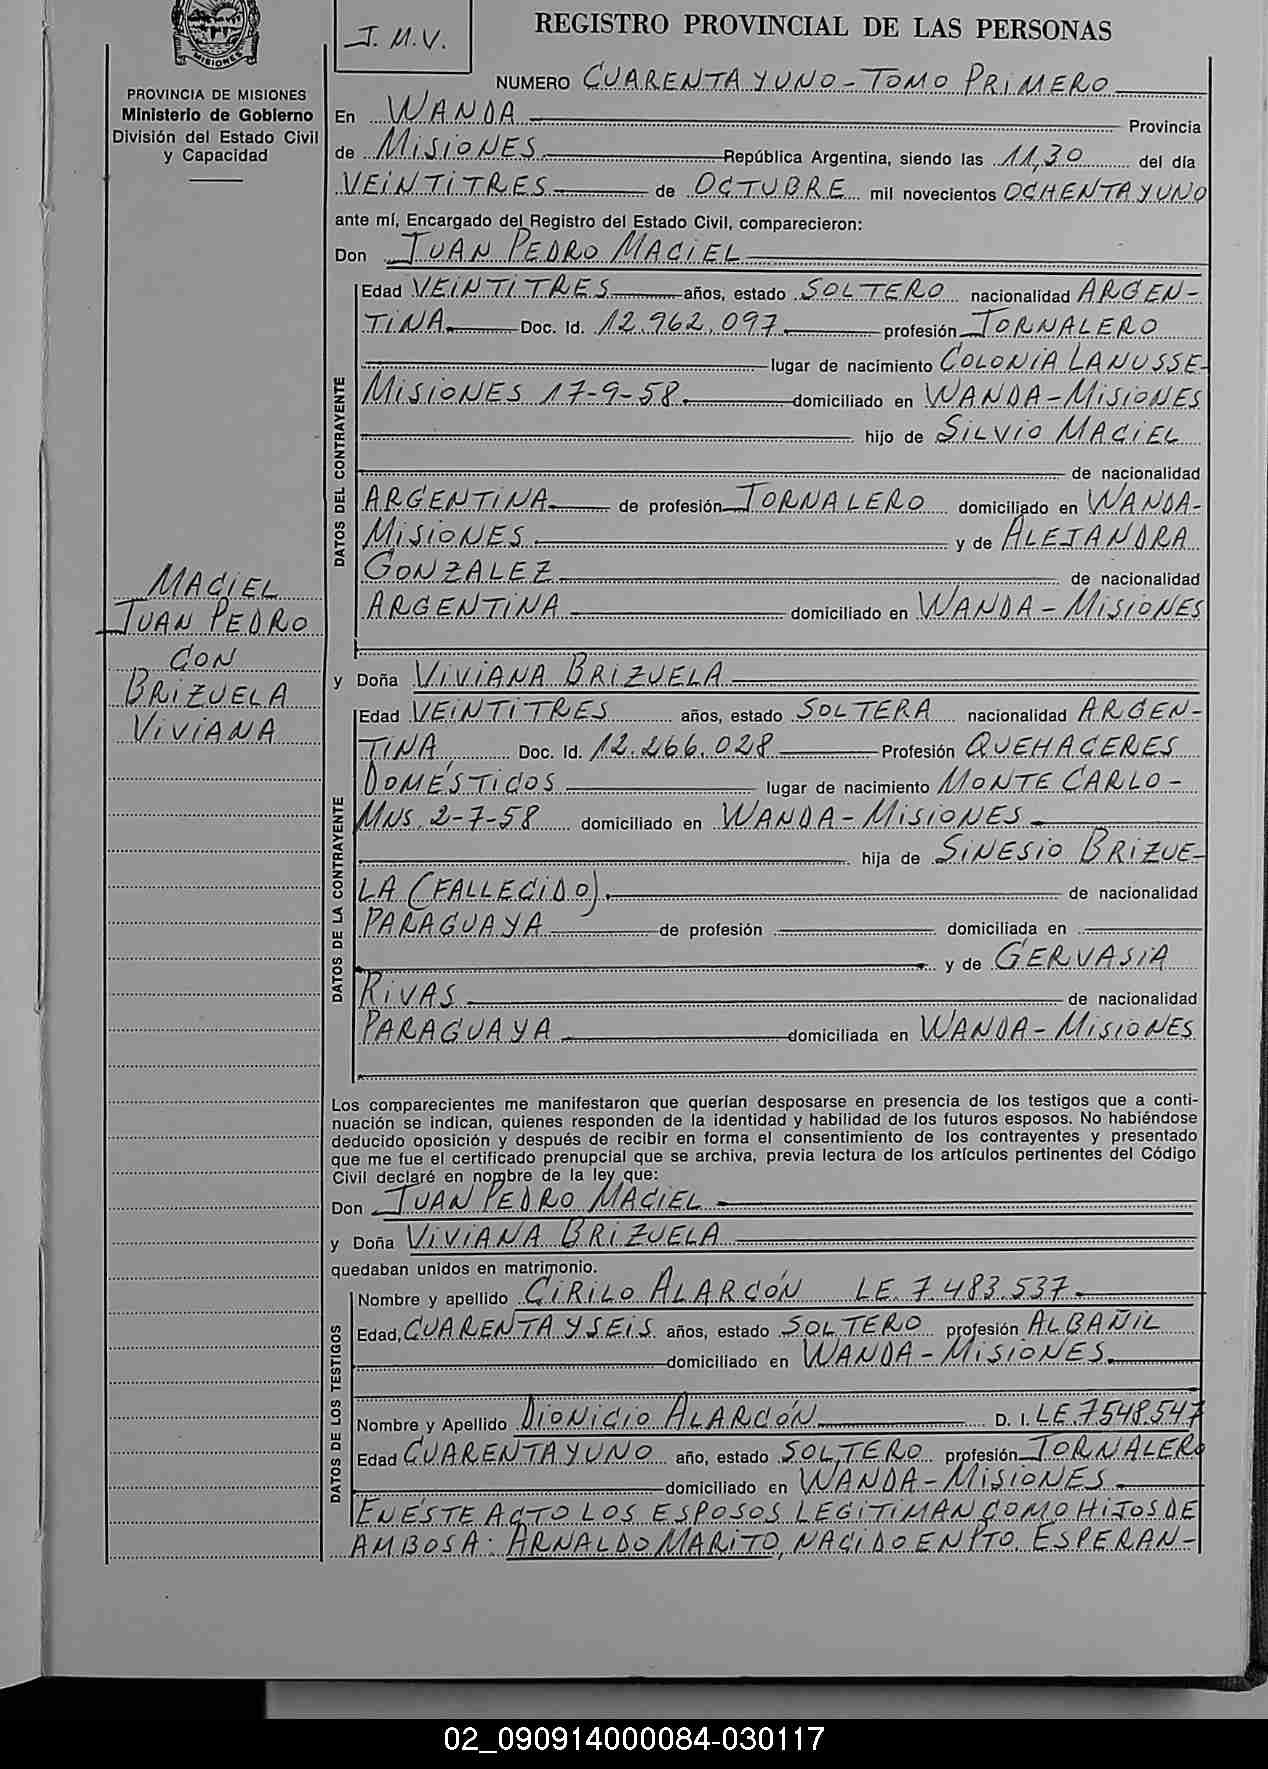 MISIONES
PROVINCIA DE MISIONES
Ministerio de Gobierno
División del Estado Civil
y Capacidad
J.M.V.
REGISTRO PROVINCIAL DE LAS PERSONAS
NUMERO CUARENTA Y UNO - TOMO PRIMERO
En WANDA Provincia
de MISIONES República Argentina, siendo las 11,30 del día
VEINTITRES de OCTUBRE mil novecientos OCHENTA Y UNO
ante mí, Encargado del Registro del Estado Civil, comparecieron:
Don JUAN PEDRO MACIEL
DATOS DEL CONTRAYENTE
Edad VEINTITRES años, estado SOLTERO nacionalidad ARGEN-
TINA Doc. Id. 12.962.097 profesión JORNALERO
lugar de nacimiento COLONIA LANUSSE-
MISIONES 17-9-58. domiciliado en WANDA - MISIONES
hijo de SILVIO MACIEL
de nacionalidad
ARGENTINA de profesión JORNALERO domiciliado en WANDA-
MISIONES y de ALEJANDRA
GONZALEZ de nacionalidad
ARGENTINA domiciliado en WANDA - MISIONES
MACIEL
JUAN PEDRO
CON
BRIZUELA
VIVIANA
y Doña VIVIANA BRIZUELA
DATOS DE LA CONTRAYENTE
Edad VEINTITRES años, estado SOLTERA nacionalidad ARGEN-
TINA Doc. Id. 12.266.028 Profesión QUEHACERES
DOMÉSTICOS lugar de nacimiento MONTE CARLO -
MNS. 2-7-58 domiciliado en WANDA - MISIONES
hija de SINESIO BRIZUE-
LA (FALLECIDO). de nacionalidad
PARAGUAYA de profesión domiciliada en
y de GERVASIA
RIVAS de nacionalidad
PARAGUAYA domiciliada en WANDA - MISIONES
Los comparecientes me manifestaron que querían desposarse en presencia de los testigos que a conti-
nuación se indican, quienes responden de la identidad y habilidad de los futuros esposos. No habiéndose
deducido oposición y después de recibir en forma el consentimiento de los contrayentes y presentado
que me fue el certificado prenupcial que se archiva, previa lectura de los artículos pertinentes del Código
Civil declaré en nombre de la ley que:
Don JUAN PEDRO MACIEL
y Doña VIVIANA BRIZUELA
quedaban unidos en matrimonio.
DATOS DE LOS TESTIGOS
Nombre y apellido CIRILO ALARCÓN LE. 7.483.537.
Edad, CUARENTA Y SEIS años, estado SOLTERO profesión ALBAÑIL
domiciliado en WANDA - MISIONES.
Nombre y Apellido DIONICIO ALARCÓN D. I. LE.7548.547
Edad CUARENTA Y UNO año, estado SOLTERO profesión JORNALERO
domiciliado en WANDA - MISIONES
EN ÉSTE ACTO LOS ESPOSOS LEGITIMAN COMO HIJOS DE
AMBOS A: ARNALDO MARITO, NACIDO EN PTO. ESPERAN-
02_090914000084-030117